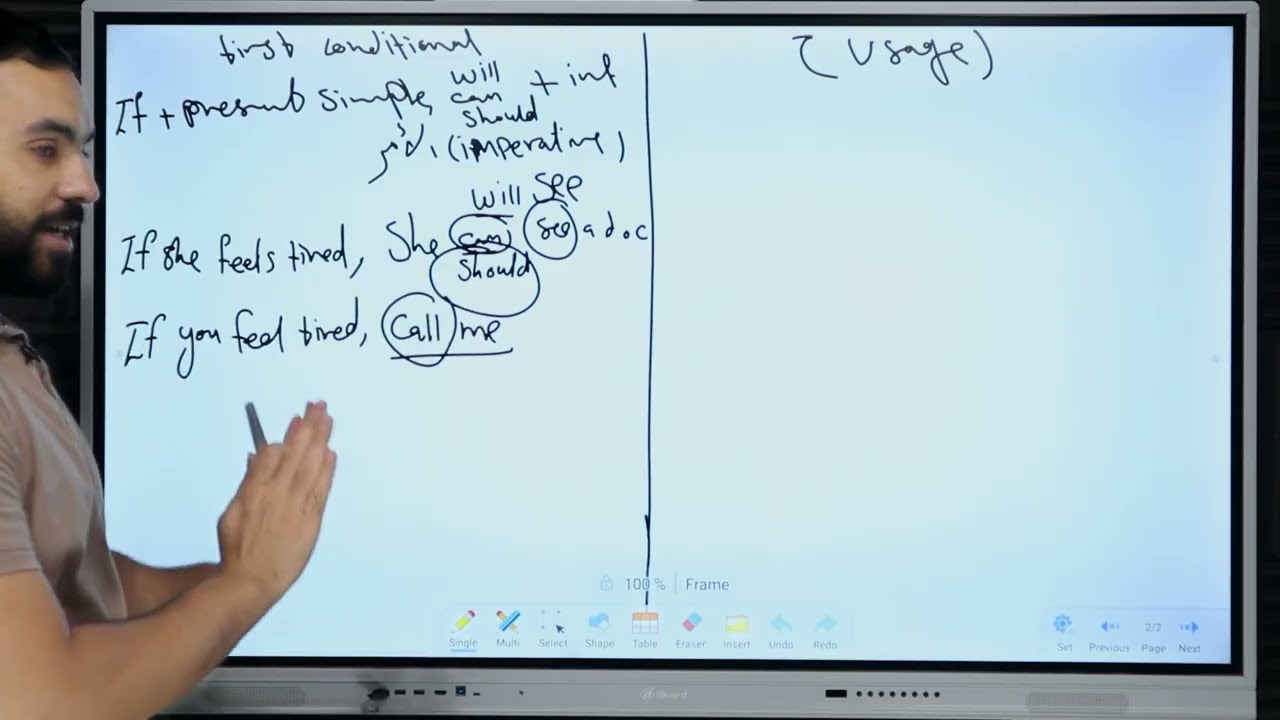 first conditional
If + present simple, will + inf
can
should
(imperative)
will see
If she feels tired, She can see a doc
should
If you feel tired, call me
(Usage)
100 % Frame
Single Multi Select Shape Table Eraser Insert Undo Redo
Set Previous 2/2 Page Next
iBoard